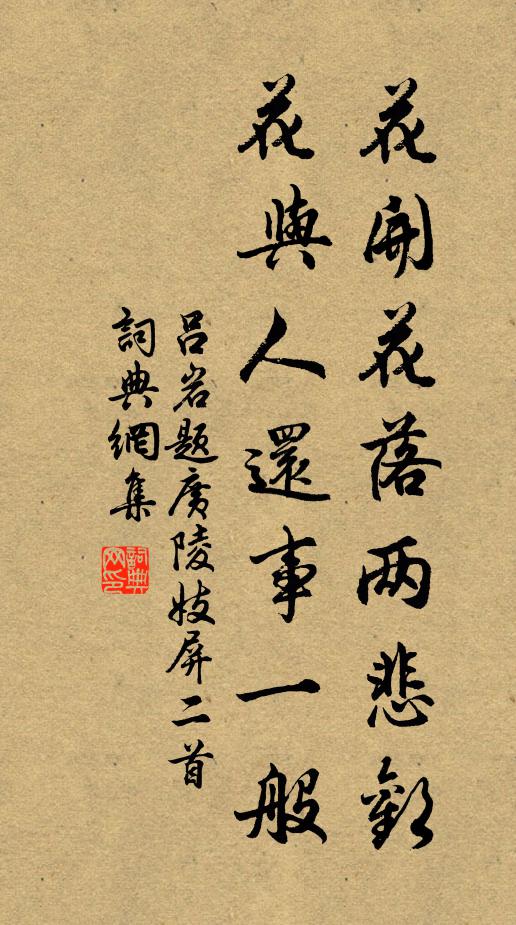 花開花落两悲歡
花與人還事一般
吕岩题廣陵妓屏二首
詞典網集
詞典网印